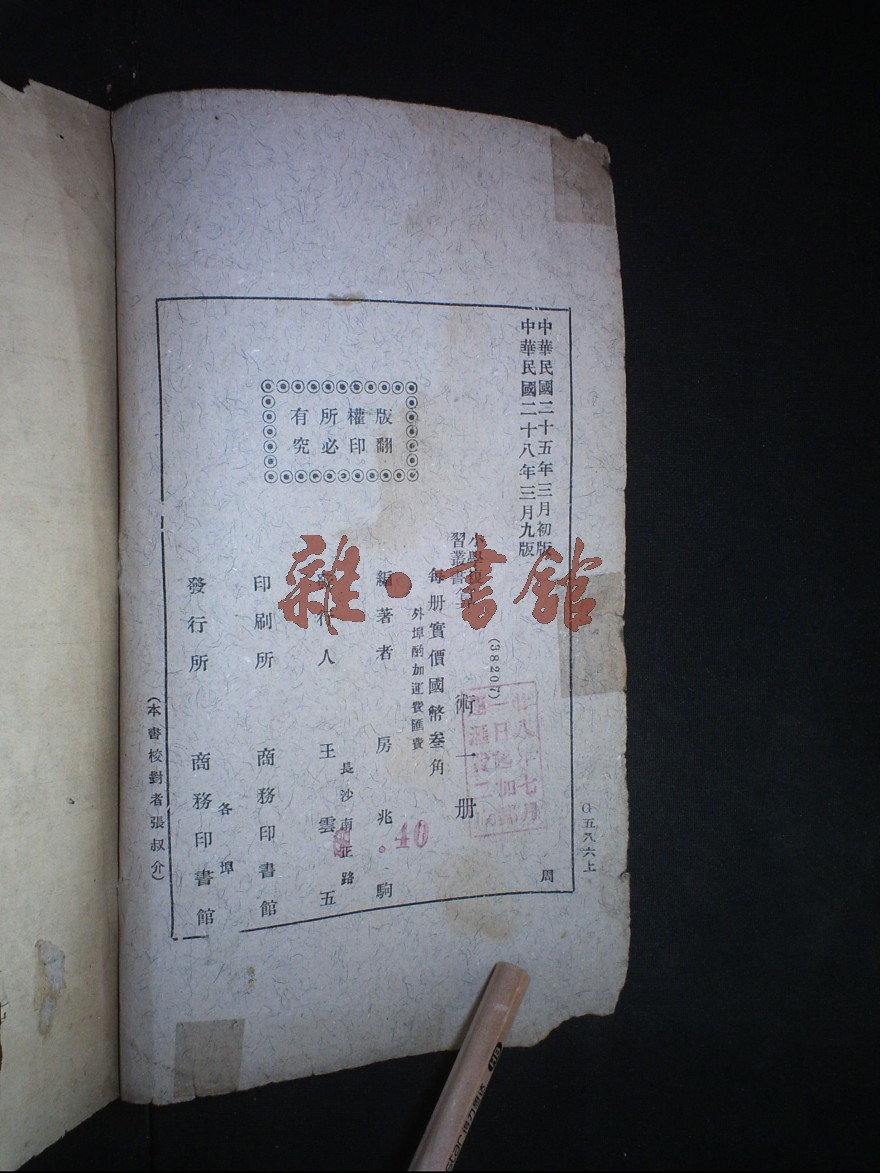 中華民國二十五年三月初版
中華民國二十八年三月九版
(38207)
小學
習叢書
術一册
每册實價國幣叁角
外埠酌加運費匯費
編著者 房兆駒
發行人 王雲五
長沙南正路
印刷所 商務印書館
發行所 商務印書館
各埠
版權所有
翻印必究
(本書校對者張叔介)
G五八六上
周
.40
雜·書館
HB